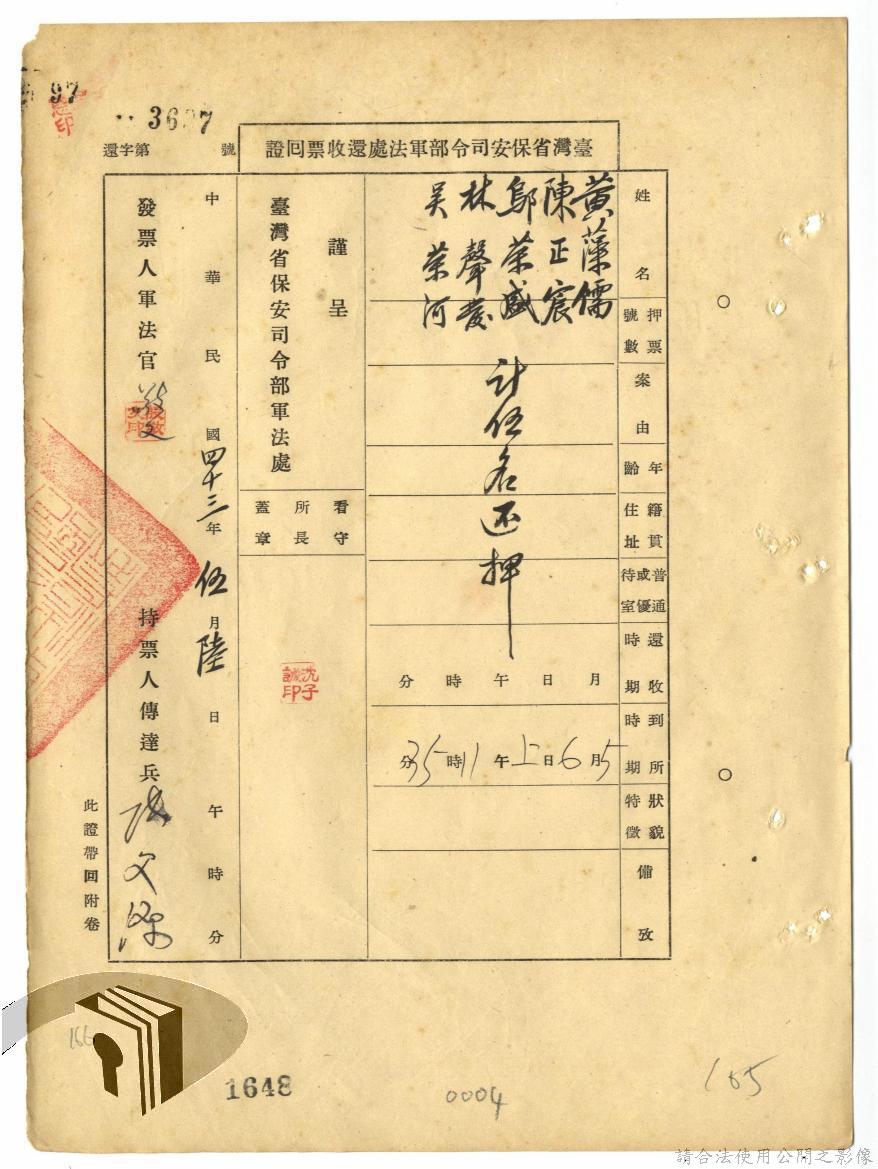 97
3637
還字第 號
臺灣省保安司令部軍法處還收票回證
姓名
黃藻儒
陳正宸
鄔榮盛
林聲發
吳榮河
計伍名还押
押票號數
案由
年齡
籍貫住址
普通或優待室
還收時期
月 日 午 時 分
到所時期
5月6日上午11時35分
狀貌特徵
備攷
謹呈
臺灣省保安司令部軍法處
看守所長蓋章
沈子誠印
中華民國四十三年伍月陸日 午 時 分
發票人軍法官
持票人傳達兵
此證帶回附卷
166
1648
0004
165
請合法使用公開之影像